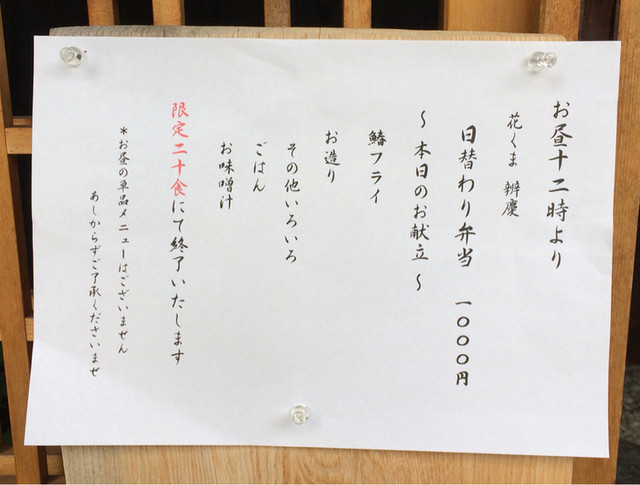 お昼十二時より
花くま 辨慶
日替わり弁当 一〇〇〇円
～本日のお献立～
鰆フライ
お造り
その他いろいろ
ごはん
お味噌汁
限定二十食にて終了いたします
＊お昼の単品メニューはございません
あしからずご了承くださいませ